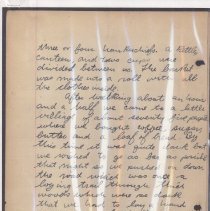 three or four handkerchiefs. a kettle
canteen and two cups were
divided between us. The basket
was made into a roll with all
the clothes inside.
After walking about an hour
and a half we came to a little
village of about seventy five people
where we bought coffee sugar
butter and a loaf of bread. By
this time it was quite dark but
we wished to go as far as possible
that night so we pushed on down
the road which was only a
logging trail through thick
woods which was so dark
that we had to lay a hand